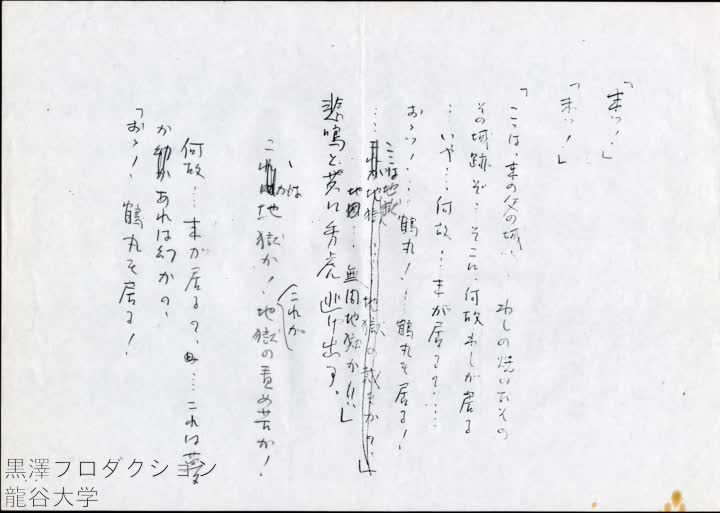 「末ッ！」
「末ッ！」
「ここは、末の父の城…… わしの焼いたその
その城跡ぞ…そこに、何故わしが居る
…いや…何故…末が居る？……
おゝッ！……鶴丸！……鶴丸も居る！
ここは地獄
……地獄……地獄の
……無間地獄か！！」
悲鳴と共に秀虎 逃げ出す。
これは地獄か！地獄の責め苦か！
（これが
何故…末が居る？、…これは夢
か、あれは幻か？、
「おゝ！ 鶴丸も居る！
黒澤プロダクション
龍谷大学